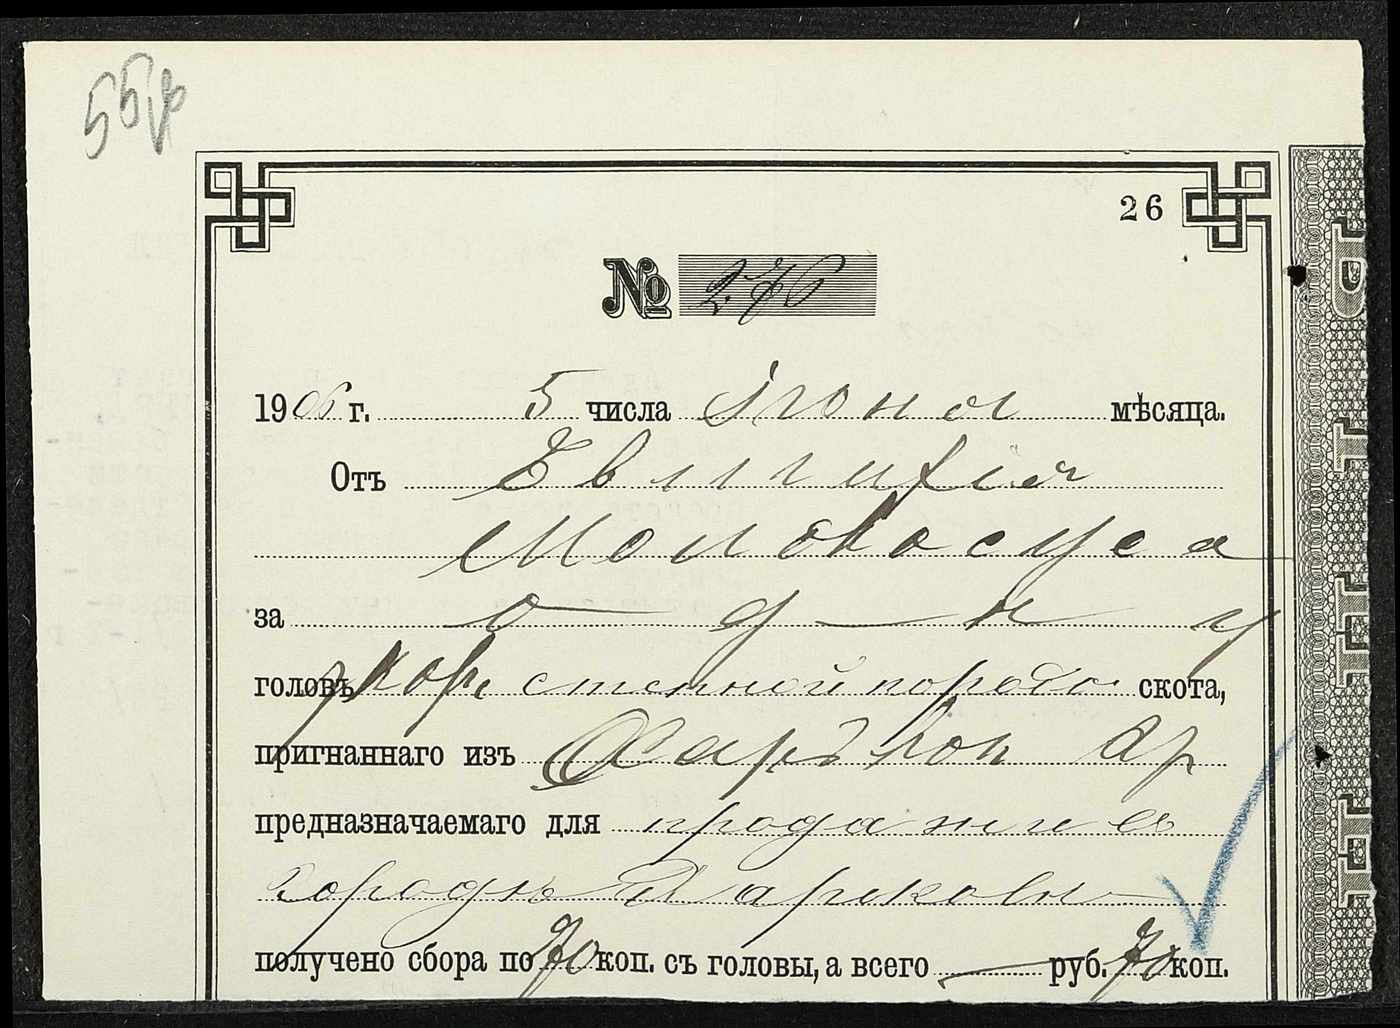 55
26
№ 276
1906 г. 5 числа Iюня мѣсяца.
Отъ
Молокосуса
за одну
головъ степной породы скота,
пригнаннаго изъ Харьков
предназначаемаго для продажи въ
городѣ Харьковѣ
получено сбора по 70 коп. съ головы, а всего — руб. 70 коп.